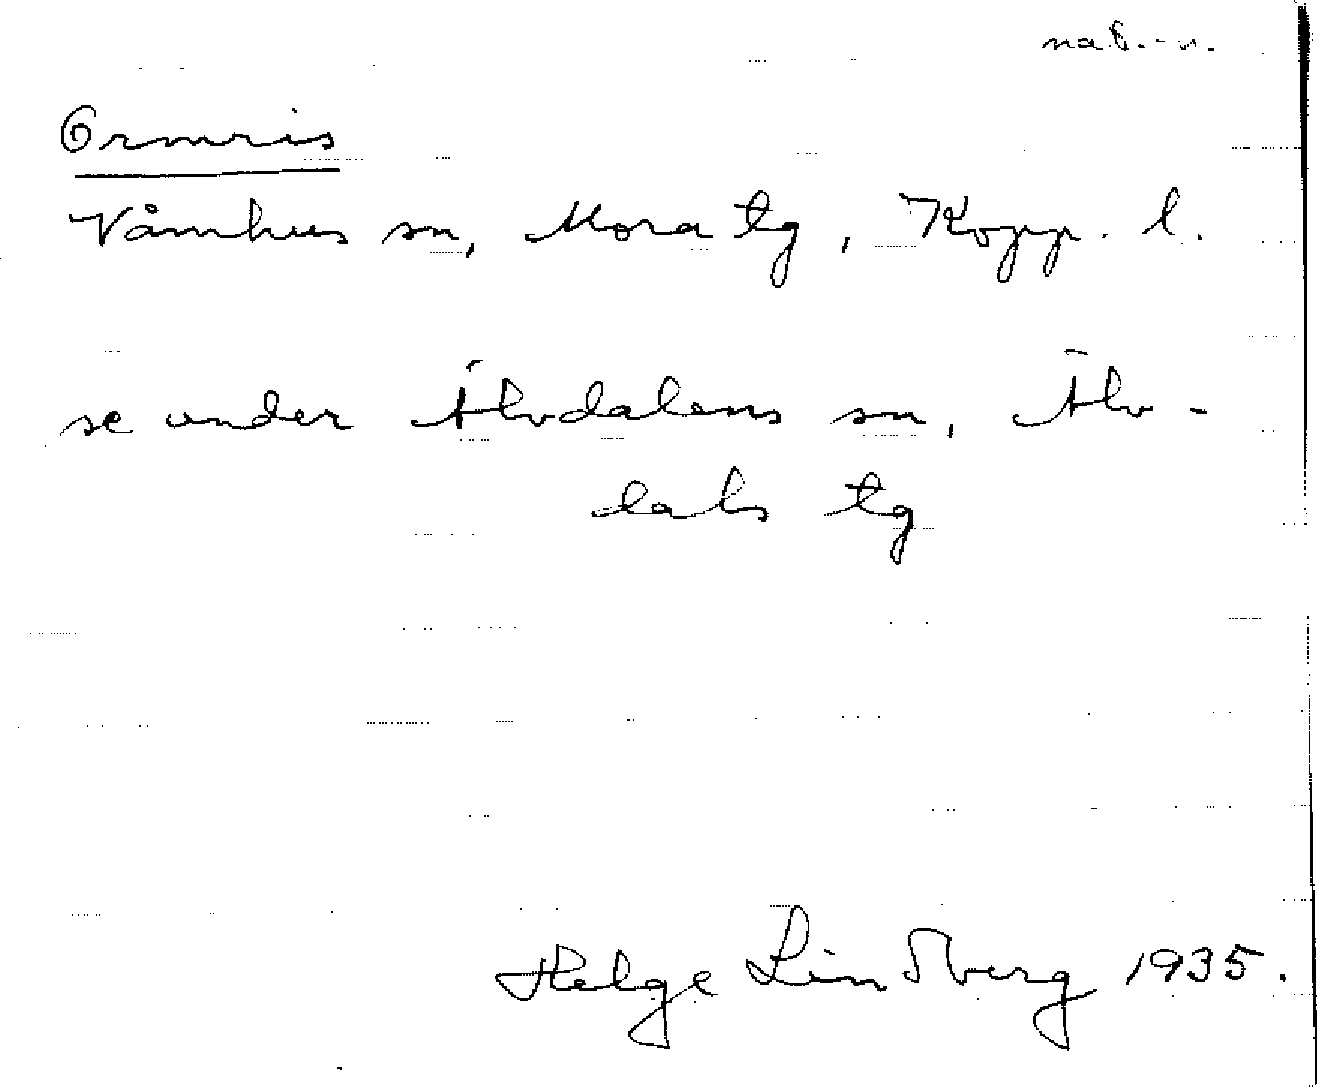 nab.-n.
Ormris
Våmhus sn, Mora tg, Kopp. l.
se under Älvdalens sn, Älv-
dals tg
Helge Lindberg 1935.